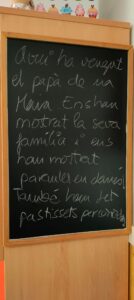 Avui ha vengut
el papà de na
Mara. Ens han
mostrat la seva
família i ens
han mostrat
paraules en danès,
també hem fet
pastissets